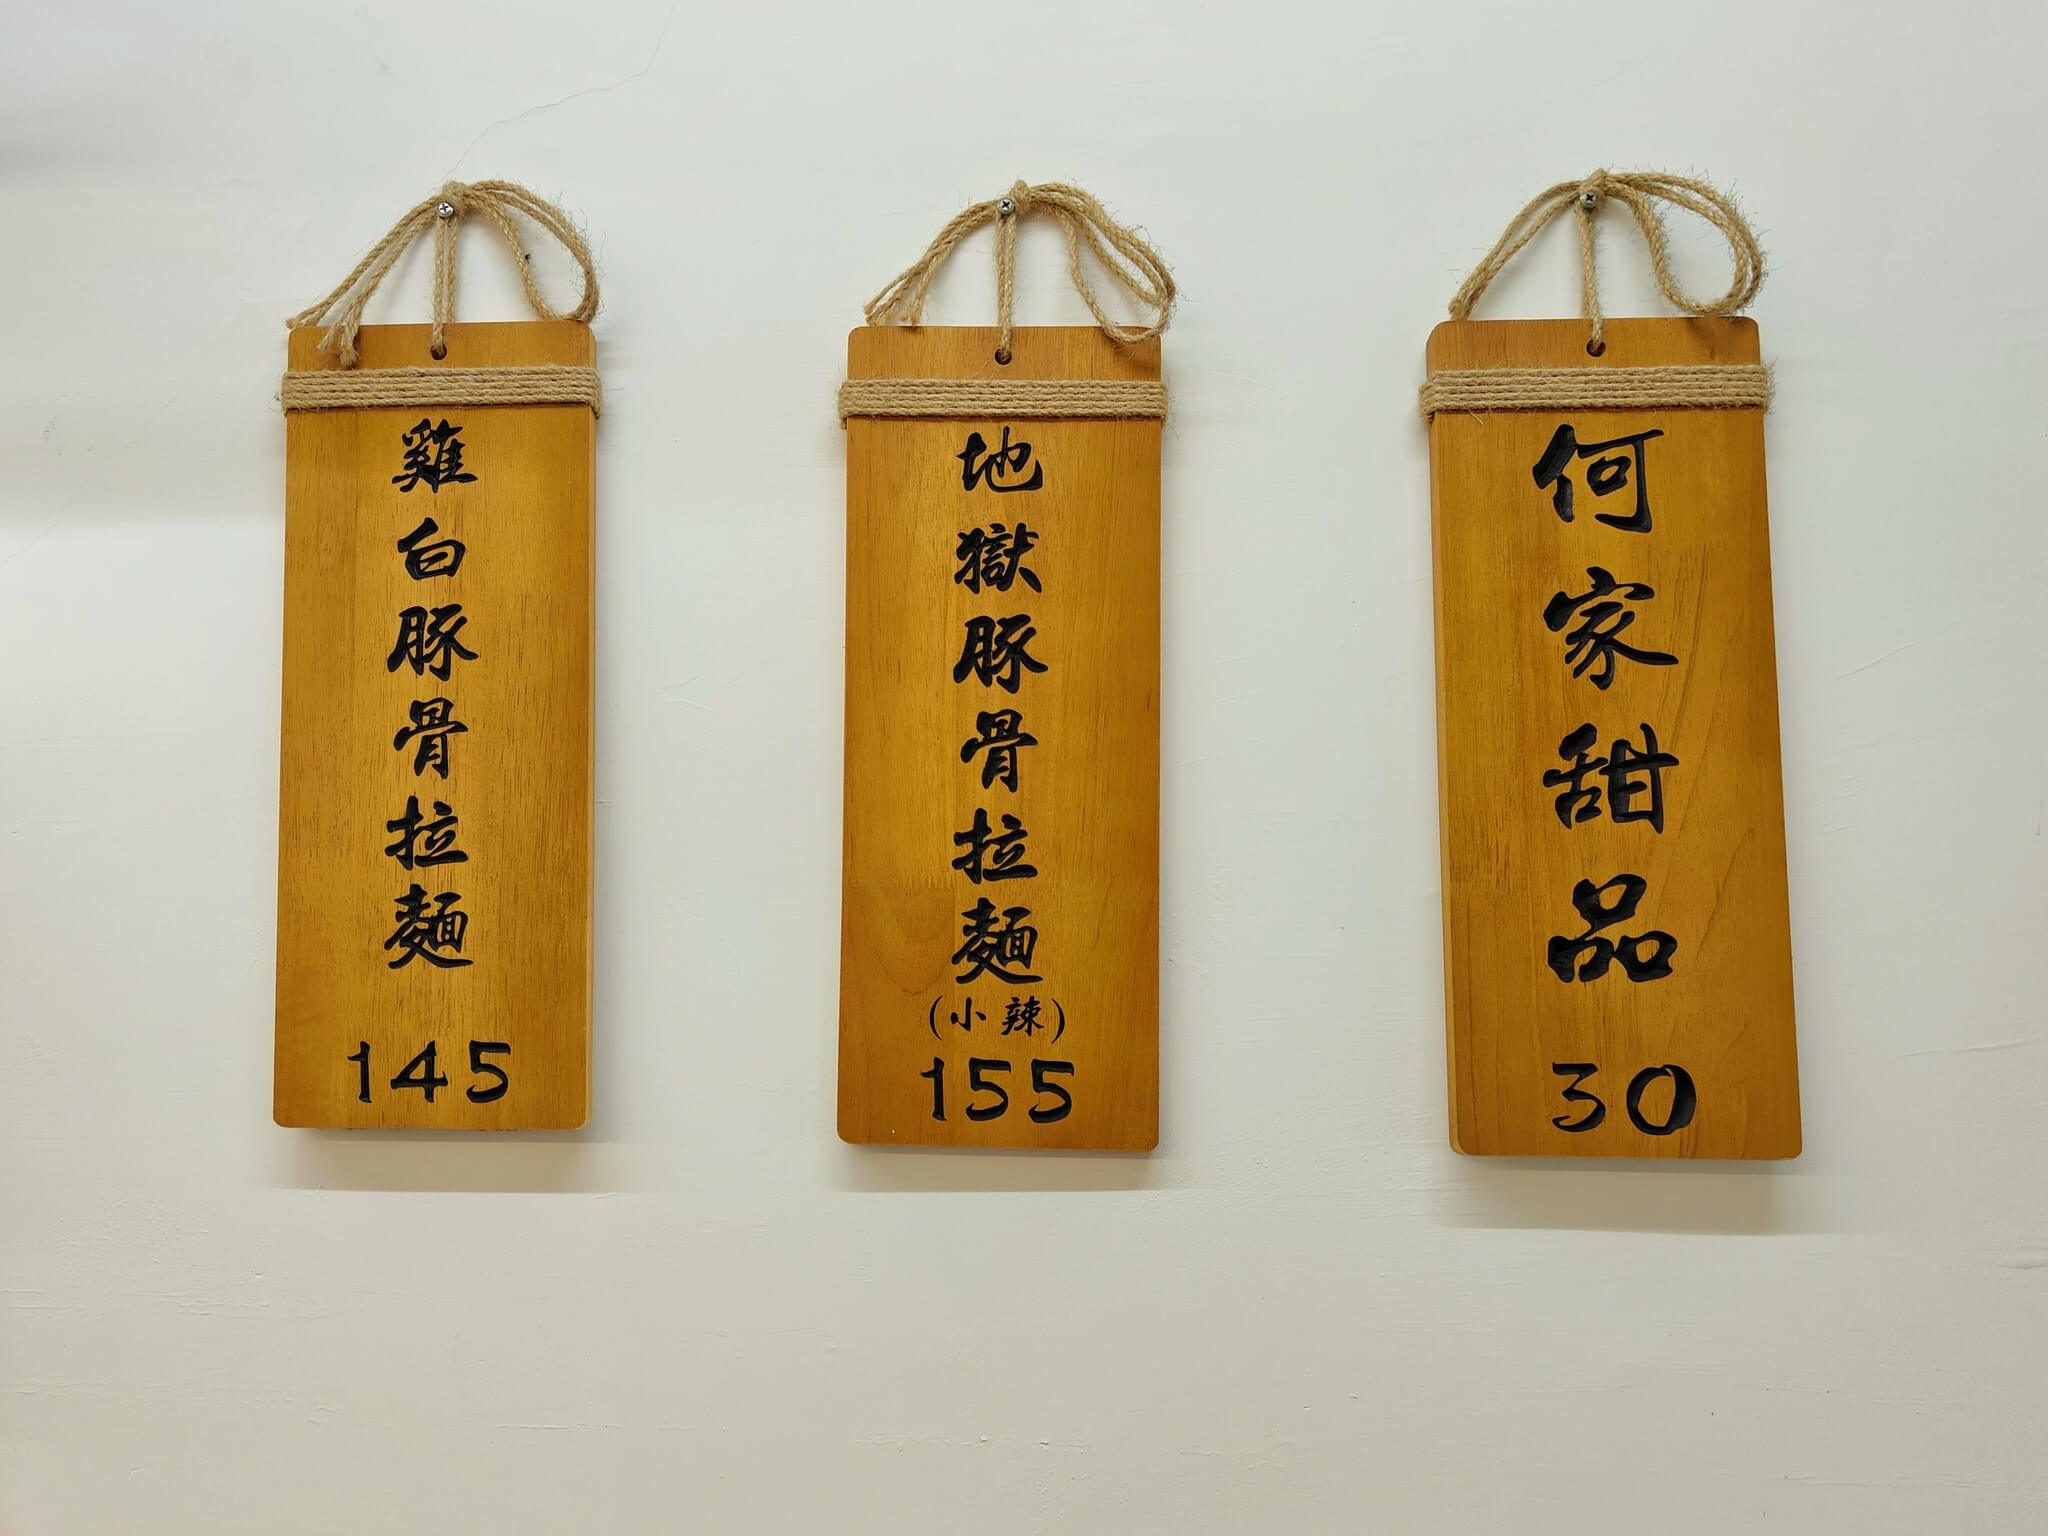 雞白豚骨拉麵
145
地獄豚骨拉麵
(小辣)
155
何家甜品
30